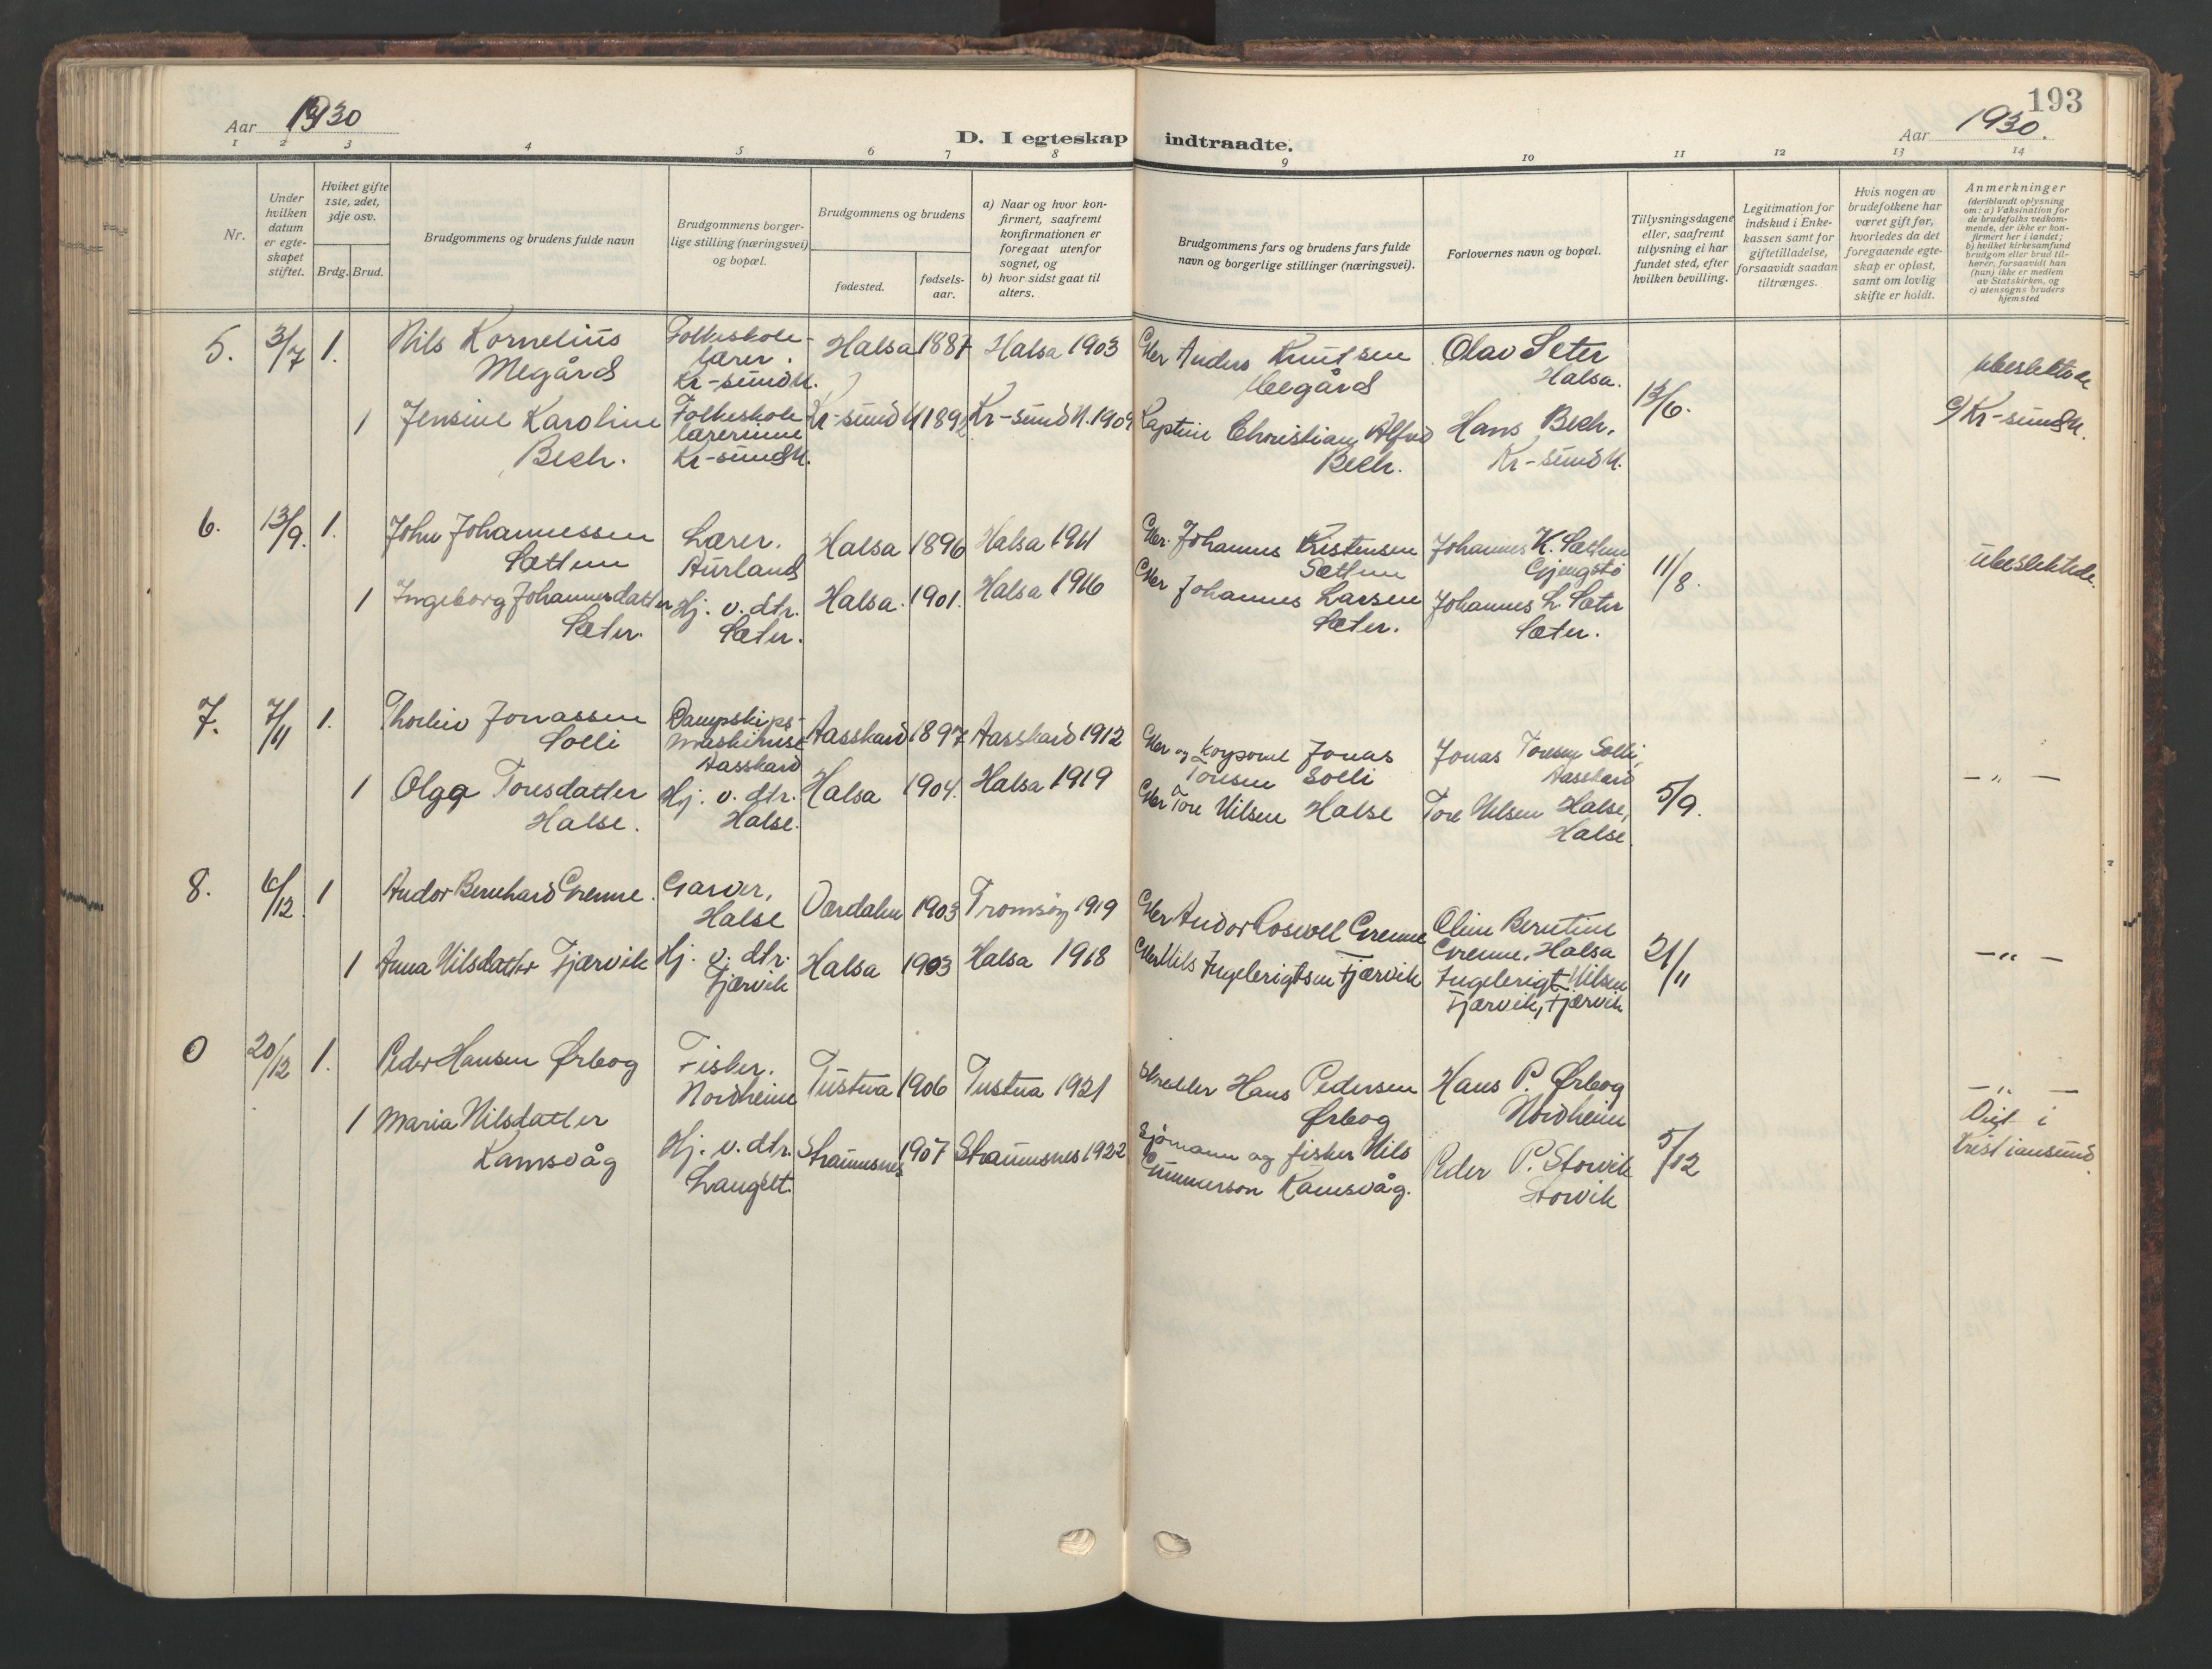 193
Aar 1930
D. I egteskap indtraadte.
Aar 1930.
1 2 3 4 5 6 7 8 9 10 11 12 13 14
Nr.
Under hvilken datum er egte-skapet stiftet.
Hviket gifte 1ste, 2det, 3dje osv.
Brdg. Brud.
Brudgommens og brudens fulde navn
Brudgommens borger-lige stilling (næringsvei) og bopæl.
Brudgommens og brudens
fødested.
fødsels-aar.
a) Naar og hvor kon-firmert, saafremt konfirmationen er foregaat utenfor sognet, og
b) hvor sidst gaat til alters.
Brudgommens fars og brudens fars fulde navn og borgerlige stillinger (næringsvei).
Forlovernes navn og bopæl.
Tillysningsdagene eller, saafremt tillysning ei har fundet sted, efter hvilken bevilling.
Legitimation for indskud i Enke-kassen samt for giftetilladelse, forsaavidt saadan tiltrænges.
Hvis nogen av brudefolkene har været gift før, hvorledes da det foregaaende egte-skap er opløst, samt om lovlig skifte er holdt.
Anmerkninger
(deriblandt oplysning om: a) Vaksination for de brudefolks vedkom-mende, der ikke er kon-firmert her i landet; b) hvilket kirkesamfund brudgom eller brud til-hører, forsaavidt han (hun) ikke er medlem av Statskirken, og c) utensogns bruders hjemsted
5. 3/7 1. Nils Kornelius Megård Folkeskole-lærer. Kr-sund N. Halsa 1887 Halsa 1903 Gbr Anders Knutsen Megård Olav Seter Halsa. ubeslektede
1 Jensine Karoline Bech. Folkeskole lærerinne Kr-sund N. Kr-sund N 1892 Kr-sund N. 1909 Kaptein Christian Alfred Bech. Hans Bech. Kr-sund N. 13/6. c) Kr-sund N.
6. 13/9. 1. John Johannessen Sættem Lærer. Aurland Halsa 1896 Halsa 1911 Gbr. Johannes Kristensen Sættem Johannes K. Sættem Gjengstø ubeslektede
1 Ingeborg Johannesdatter Sæter. Hj. v. dtr. Sæter. Halsa. 1901. Halsa 1916 Gbr Johannes Larsen Sæter. Johannes L. Sæter Sæter. 11/8.
7. 7/11 1. Thorleiv Jonassen Solli Dampskips-maskinist Aasskard Aasskard 1897 Aasskard 1912 Gbr og korporal Jonas Toresen Solli Jonas Toresen Solli, Aasskard — „ —
1 Olga Toresdatter Halse. Hj. v. dtr. Halse. Halsa 1904. Halsa 1919 Gbr Tore Nilsen Halse Tore Nilsen Halse, Halse. 5/9.
8. 6/12. 1 Andor Bernhard Grenne. Garver, Halse Værdalen 1903 Tromsøy 1919 Gbr Andor Grenne Oline Berntine Grenne, Halsa — „ —
1 Anna Nilsdatter Fjærvik Hj. v. dtr. Fjærvik Halsa 1903 Halsa 1918 Gbr Nils Ingebrigtsen Fjærvik Ingebrigt Nilsen Fjærvik, Fjærvik 21/11
20/12 1. Peder Hansen Ørbog Fisker. Nordheim Tustna 1906 Tustna 1921 Hans Pedersen Ørbog Hans P. Ørbog Nordheim — „ —
1 Maria Nilsdatter Kamsvåg Hj. v. dtr. Langset. Straumsnes 1907 Straumsnes 1922 Sjømann og fisker Nils Gunnarson Kamsvåg. Peder P. Storvik Storvik 5/12 Viet i Kristiansund.